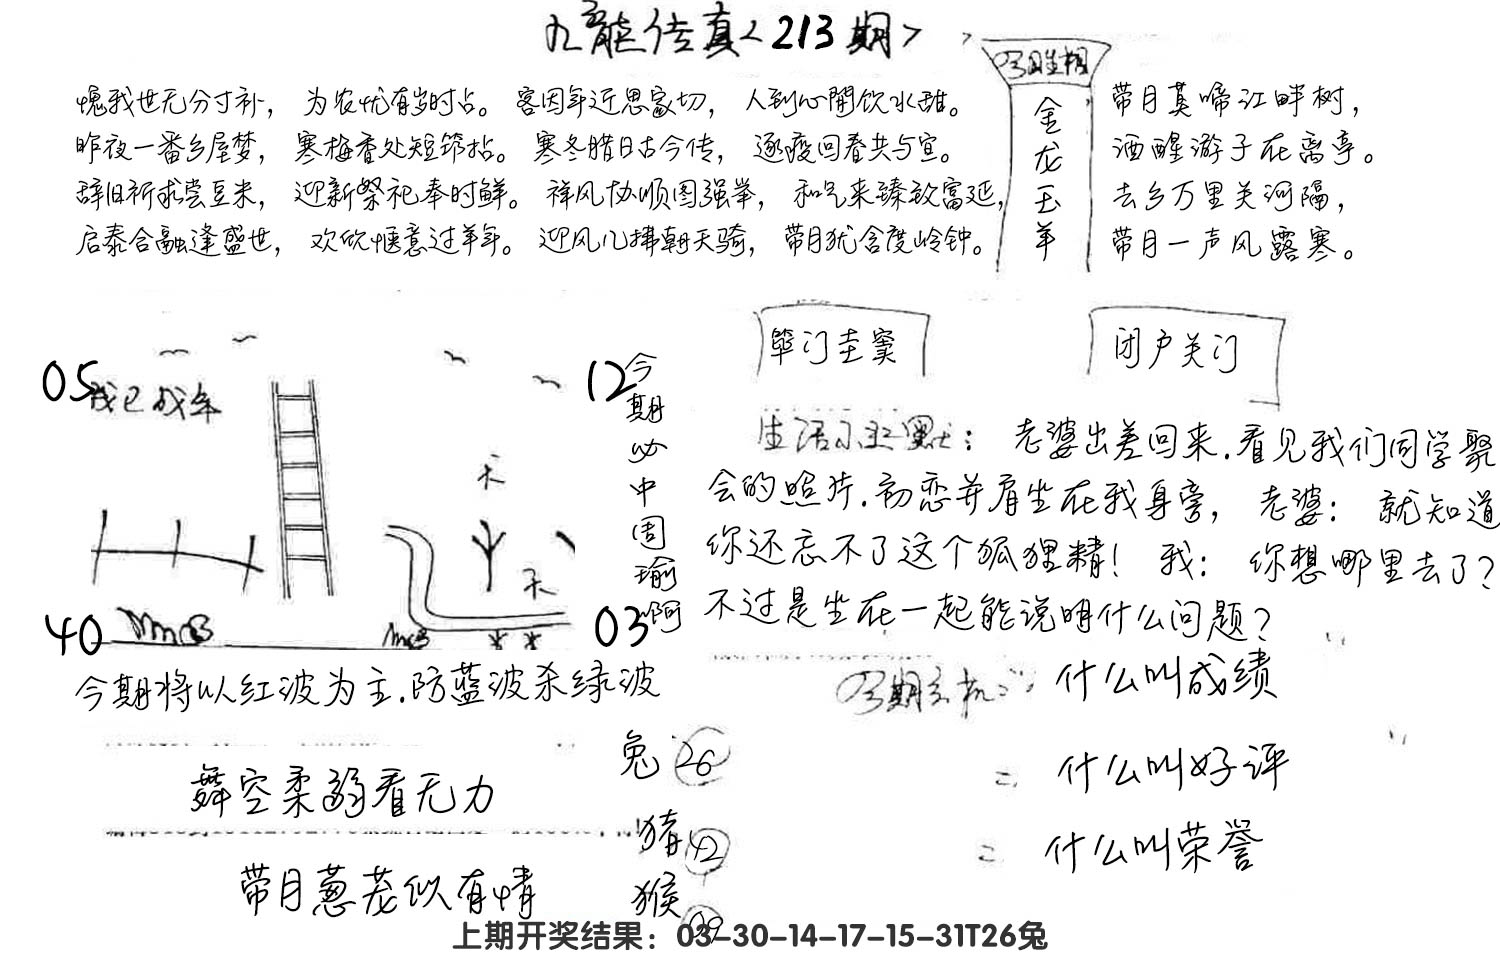 九龍传真<213期>
愧我世无分寸补， 为农忧有岁时占。 客因年近思家切， 人到心闲饮水甜。
昨夜一番乡屋梦， 寒梅香处短筇拈。 寒冬腊日古今传， 逐疫回春共与宜。
辞旧祈求尝豆米， 迎新祭祀奉时鲜。 祥风协顺图强举， 和气来臻致富延，
启泰合融逢盛世， 欢欣惬意过羊年。 迎风几拂朝天骑， 带月犹含度岭钟。
今日生相
金龙玉羊
带月莫啼江畔树，
酒醒游子在离亭。
去乡万里关河隔，
带月一声风露寒。
筚门圭窦
闭户关门
05
我已成年
12
天
天
40
03
今期必中周瑜啊
生活小幽默： 老婆出差回来.看见我们同学聚
会的照片.初恋并肩坐在我身旁， 老婆： 就知道
你还忘不了这个狐狸精！ 我： 你想哪里去了？
不过是坐在一起能说明什么问题？
今期将以红波为主.防蓝波杀绿波
今期玄机： 什么叫成绩
= 什么叫好评
= 什么叫荣誉
舞空柔弱看无力
带月葱茏似有情
兔 26
猪 42
猴 09
上期开奖结果：03-30-14-17-15-31T26兔